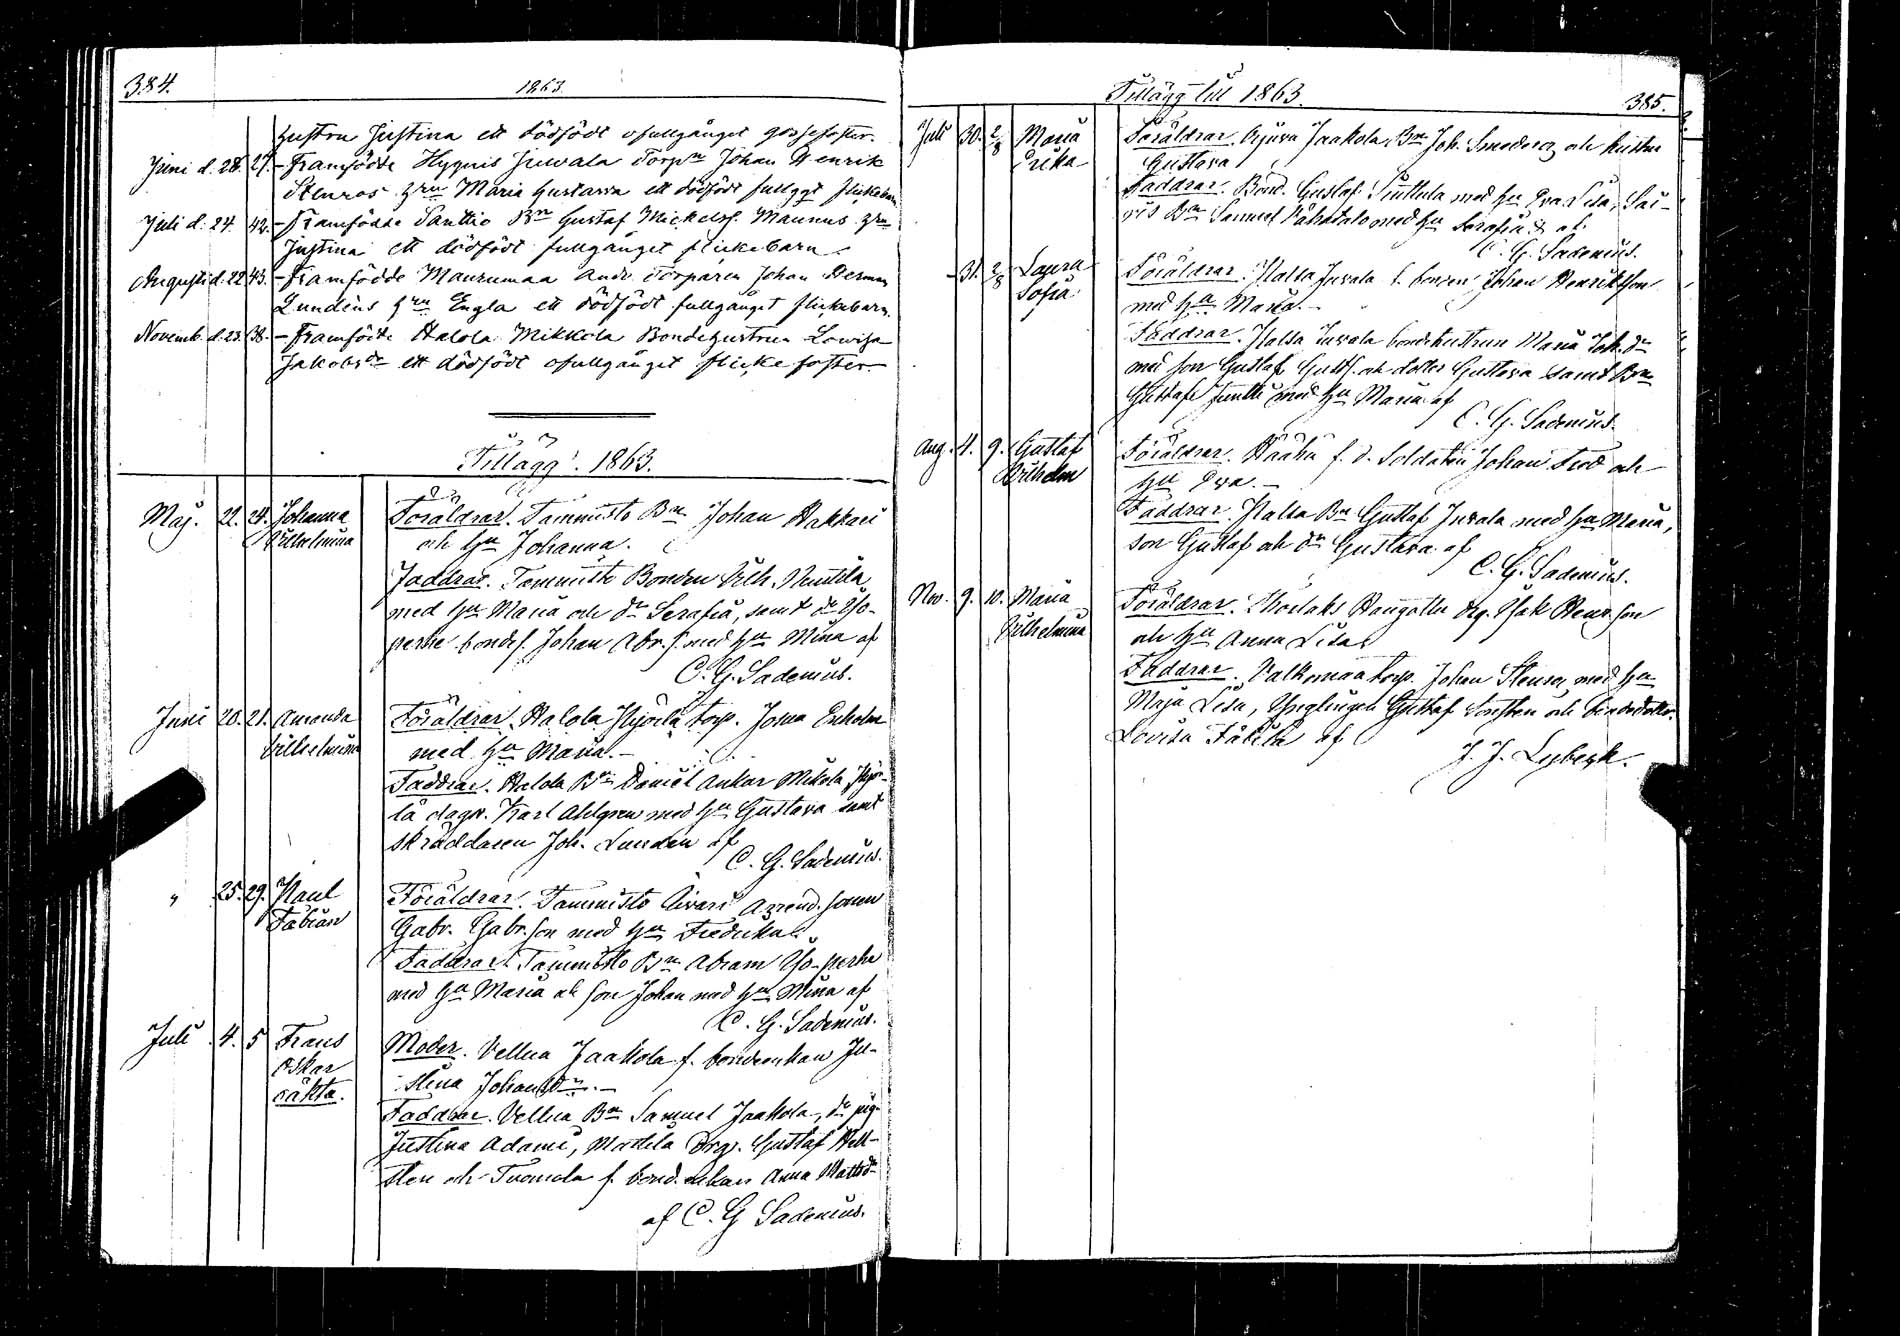 384.
1863.
hustru Justina ett dödfödt ofullgånget gossefoster.
Juni d. 28. 27. - Framfödde Hygnis Juvala Torpn Johan Henrik
Stenros hru Maria Gustava ett dödfödt fullggt flickebarn
Juli d. 24. 42. - Framfödde Santtio Bn Gustaf Mickelsf. Maunus hru
Justina ett dödfödt fullgånget flickebarn.
Augusti d. 22. 43. - Framfödde Maurumaa Torparen Johan Herman
Lundéns hru Engla ett dödfödt fullgånget flickebarn.
Novemb. d. 23. 38. - Framfödde Halola Mikkola Bondehustrun Lowisa
Jakobsdr ett dödfödt ofullgånget flickefoster
Tillägg. 1863.
Maj. 22. 24. Johanna Föräldrar. Tammisto Bn Johan Hakkari
Vilhelmina och hu Johanna.
Faddrar. Tammisto Bonden Vilh.
med hu Maria och dr Serafia, samt
perhe bondes. Johan Abr. s. med hu Mina af
C. G. Sadenius.
Juni 20. 21. Amanda Föräldrar. Halola torp. Ekholm
Vilhelmina med hu Maria. -
Faddrar. Halola Bn Daniel Ankar Mikola
lä dagk. Karl Ahlgren med hu Gustava samt
skräddaren Joh. Lunden af
C. G. Sadenius.
" 25. 29. Paul Föräldrar. Tammisto arrend. sonen
Fabian Gabr. Gabr.son med hu Fredrika.
Faddrar. Tammisto Bn Abram Iso-perhe
med hu Maria och son Johan med hu Mina af
C. G. Sadenius.
Juli 4. 5 Frans Moder. Vellua Jaakola f. bondeenkan Ju-
Oskar stina Johansdr. -
oäkta. Faddrar. Vellua Bn Samuel Jaakola, dr pig.
Justina Adami, Mattila drg. Gustaf Hell-
sten och Tuomola f. bond.enkan Anna Mattsdr
af C. G Sadenius.
Tillägg till 1863.
385.
Juli 30. 2/8 Maria Föräldrar. Jaakola Bn Joh. och hustru
Erika Gustava
Faddrar. Bond. Gustaf med hu Eva Lisa, Sai-
ris Bn Samuel med hu Serafia af
C. G. Sadenius.
- 31. 2/8 Laura Föräldrar. Halsa Juvala f. bonden Johan Henriksson
Sofia med hu Maria. -
Faddrar. Halsa Juvala bondehustrun Maria Joh.dr
med son Gustaf Gustfs. och dotter Gustava samt Bn
Gustaf Juntti med hu Maria af
C. G. Sadenius.
Aug. 4. 9. Gustaf Föräldrar. f. d. Soldaten Johan och
Vilhelm hu Eva. -
Faddrar. Halsa Bn Gustaf Juvala med hu Maria,
son Gustaf och dr Gustava af
C. G. Sadenius.
Nov. 9. 10. Maria Föräldrar. drg. Isak Henr.son
Vilhelmina och hu Anna Lisa
Faddrar. Valkomaa torp. Johan Stenros med hu
Maja Lisa, Ynglingen Gustaf och bondedotter.
Lovisa af
J. J. Lybeck.